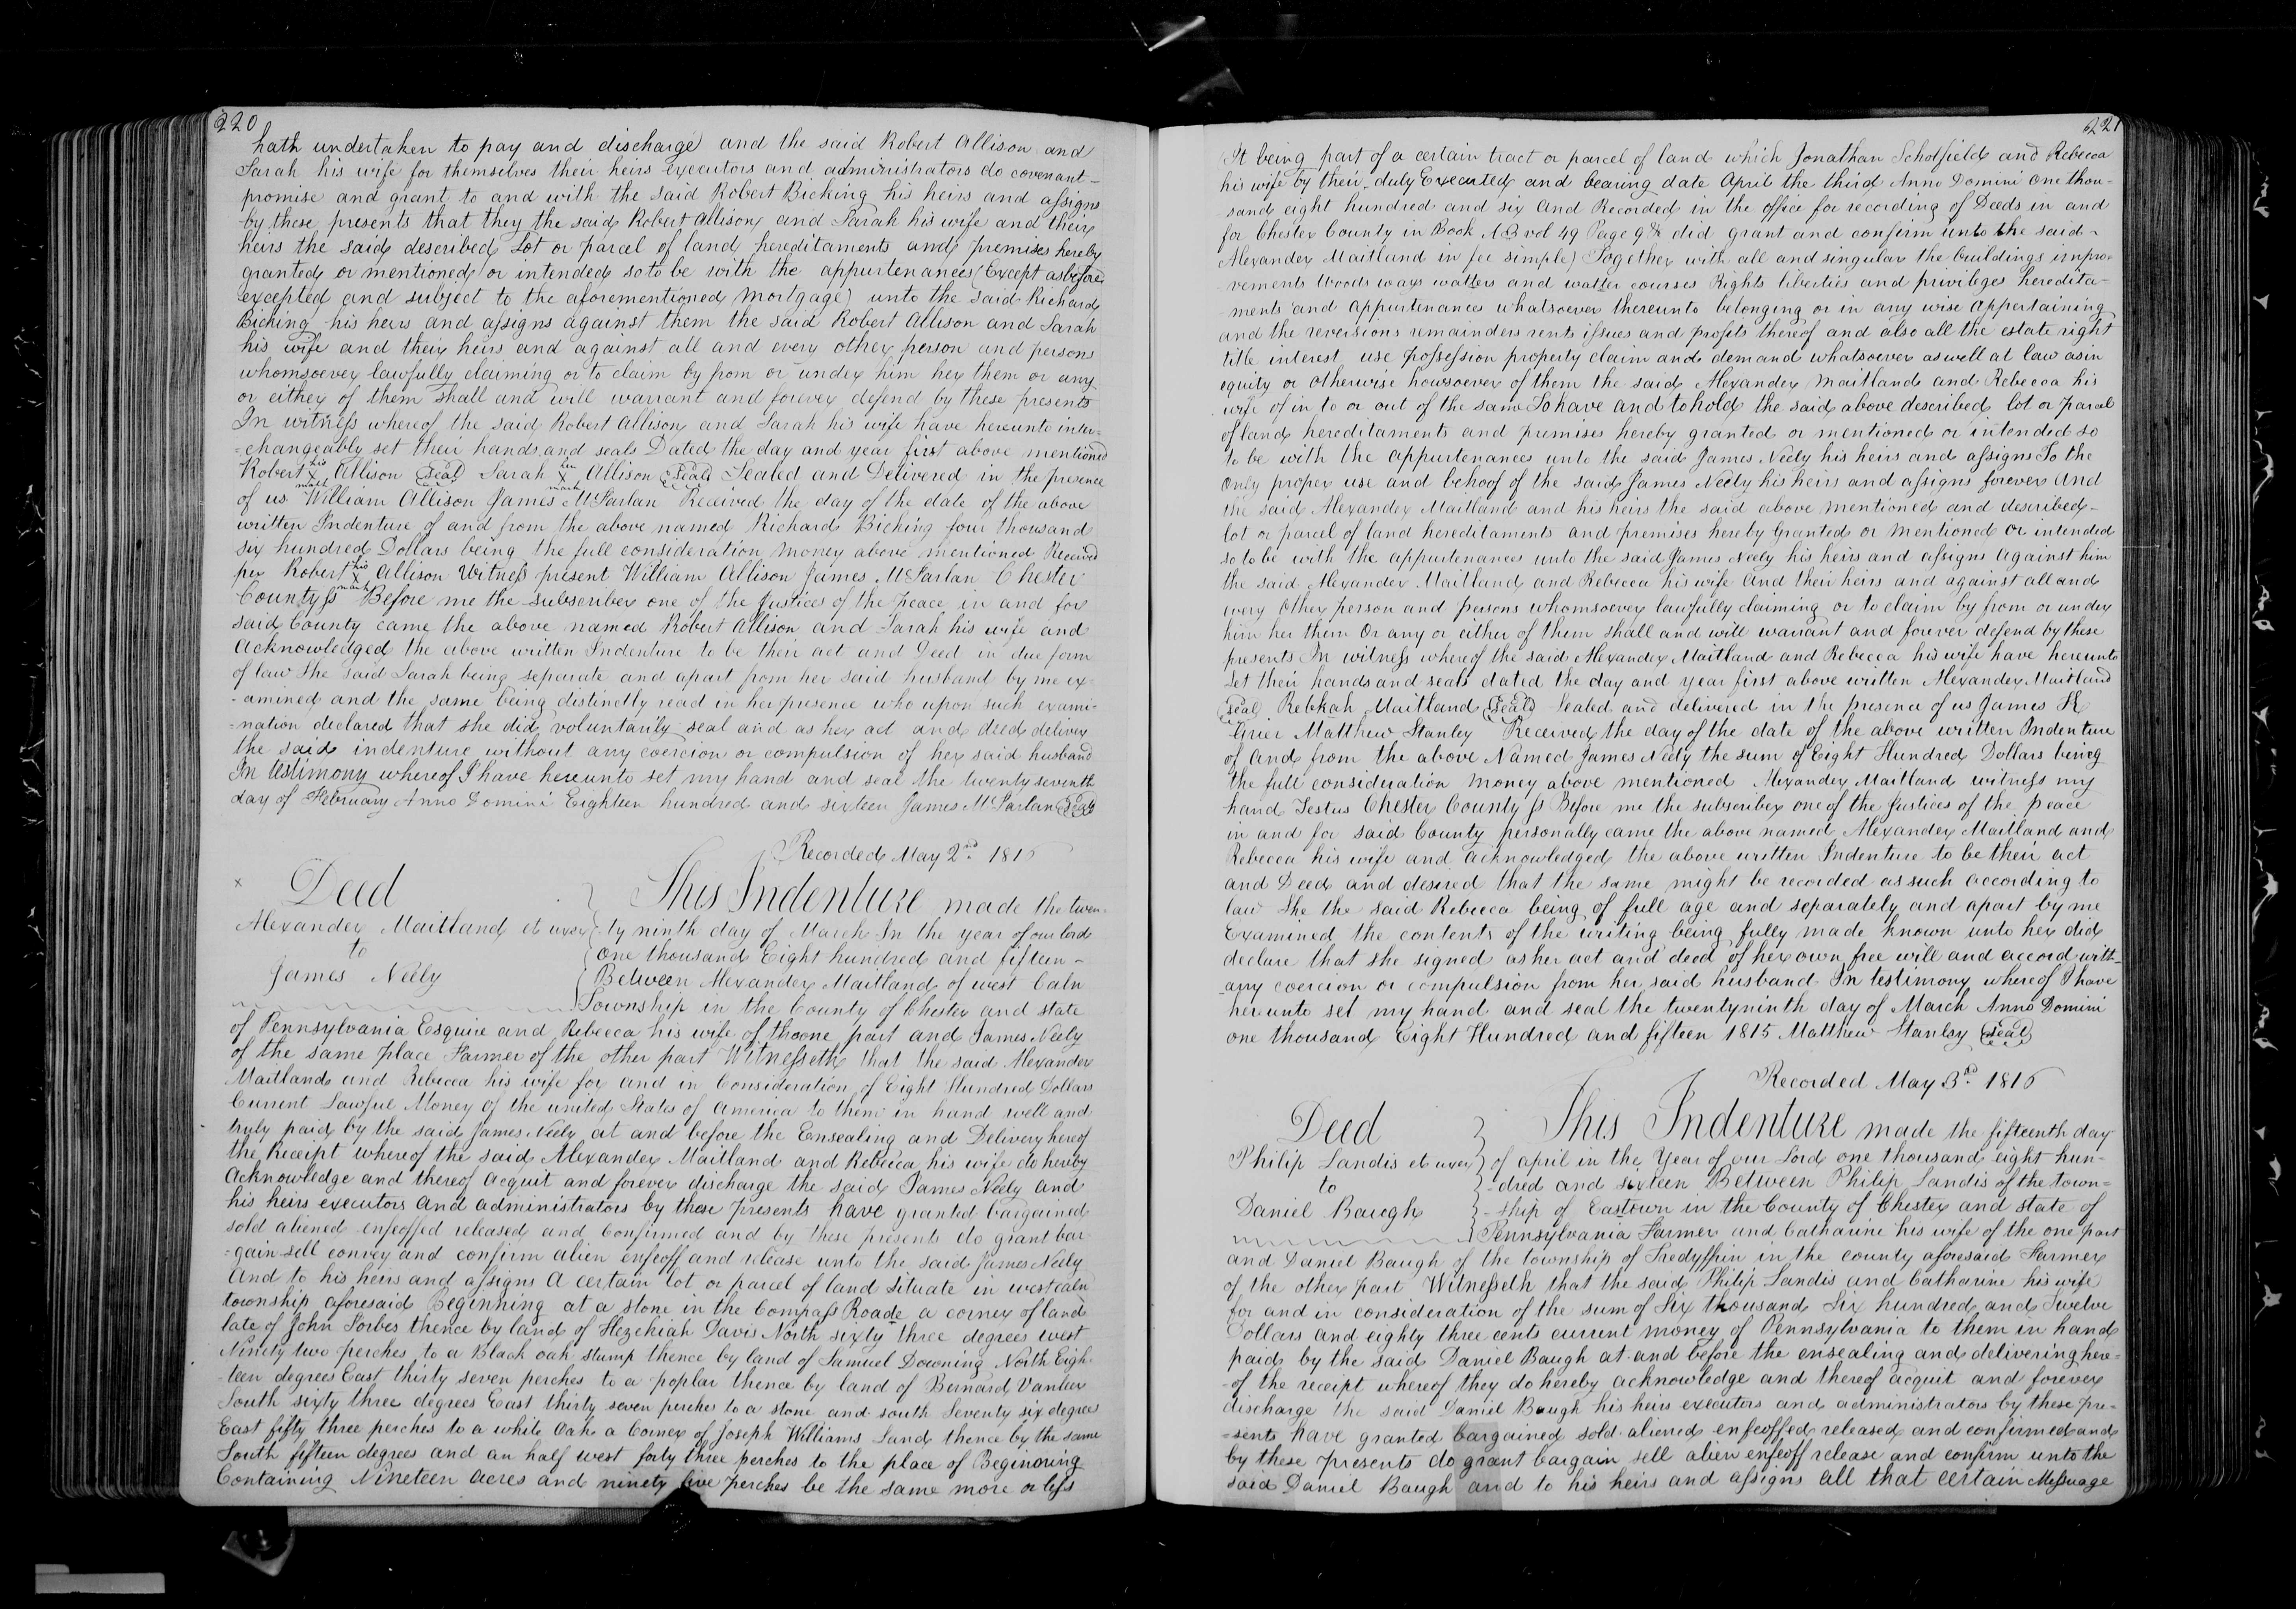 220
hath undertaken to pay and discharge) and the said Robert Allison and
Sarah his wife for themselves their heirs executors and administrators do covenant
promise and grant to and with the said Robert Bicking his heirs and assigns
by these presents that they the said Robert Allison and Sarah his wife and their
heirs the said described Lot or parcel of land hereditaments and premises hereby
granted or mentioned or intended so to be with the appurtenances (Except as before
excepted and subject to the aforementioned Mortgage) unto the said Richard
Bicking his heirs and assigns against them the said Robert Allison and Sarah
his wife and their heirs and against all and every other person and persons
whomsoever lawfully claiming or to claim by from or under him her them or any
or either of them Shall and will warrant and forever defend by these presents
In witness whereof the said Robert Allison and Sarah his wife have hereunto inter-
-changeably set their hands and seals Dated the day and year first above mentioned
Robert his X mark Allison Seal Sarah her X mark Allison Seal Sealed and Delivered in the presence
of us William Allison James McFarlan Received the day of the date of the above
written Indenture of and from the above named Richard Bicking four thousand
six hundred Dollars being the full consideration Money above mentioned Received
per Robert his X mark Allison Witness present William Allison James McFarlan Chester
County ss Before me the subscriber one of the Justices of the Peace in and for
said County came the above named Robert Allison and Sarah his wife and
Acknowledged the above written Indenture to be their act and Deed in due form
of law She said Sarah being separate and apart from her said husband by me ex-
-amined and the same being distinctly read in her presence who upon such exami-
-nation declared that she did voluntarily seal and as her act and deed deliver
the said indenture without any coercion or compulsion of her said husband
In testimony whereof I have hereunto set my hand and seal the twenty seventh
day of February Anno Domini Eighteen hundred and sixteen James McFarlan Seal
Recorded May 2nd. 1816
x Deed
Alexander Maitland et uxor
to
James Neely
This Indenture made the twen-
ty ninth day of March In the year of our lord
One thousand Eight hundred and fifteen -
Between Alexander Maitland of west Caln
Township in the County of Chester and state
of Pennsylvania Esquire and Rebecca his wife of the one part and James Neely
of the same place Farmer of the other part Witnesseth that the said Alexander
Maitland and Rebecca his wife for and in Consideration of Eight Hundred Dollars
Current Lawful Money of the united States of America to them in hand well and
truly paid by the said James Neely at and before the Ensealing and Delivery hereof
the Receipt whereof the said Alexander Maitland and Rebecca his wife do hereby
Acknowledge and thereof acquit and forever discharge the said James Neely and
his heirs executors and administrators by these presents have granted bargained
sold aliened enfeoffed released and Confirmed and by these presents do grant bar
-gain sell convey and confirm alien enfeoff and release unto the said James Neely
And to his heirs and assigns A certain lot or parcel of land situate in west caln
township aforesaid Beginning at a stone in the Compass Roade a corner of land
late of John Forbes thence by land of Hezekiah Davis North sixty three degrees west
Ninety two perches to a Black oak stump thence by land of Samuel Downing North Eigh-
-teen degrees East thirty seven perches to a poplar thence by land of Bernard Vanleer
South sixty three degrees East thirty seven perches to a stone and south Seventy six degrees
East fifty three perches to a white Oak a Corner of Joseph Williams Land thence by the same
South fifteen degrees and an half west forty three perches to the place of Beginning
Containing Nineteen acres and ninety five perches be the same more or less
221
It being part of a certain tract or parcel of land which Jonathan Scholfield and Rebecca
his wife by their duly Executed and bearing date April the third Anno Domini One thou-
sand eight hundred and six And Recorded in the office for recording of Deeds in and
for Chester County in Book vol 49 Page 9 &c did grant and confirm unto the said
Alexander Maitland in fee simple) Together with all and singular the buildings impro-
vements Woods ways watters and watter courses Rights liberties and privileges heredita-
ments and Appurtenances whatsoever thereunto belonging or in any wise Appertaining
and the reversions remainders rents issues and profits thereof and also all the estate right
title interest use possession property claim and demand whatsoever as well at law as in
equity or Otherwise howsoever of them the said Alexander Maitland and Rebecca his
wife of in to or out of the same To have and to hold the said above described lot or parcel
of land hereditaments and premises hereby granted or mentioned or intended so
to be with the Appurtenances unto the said James Neely his heirs and assigns To the
Only proper use and behoof of the said James Neely his heirs and assigns forever And
the said Alexander Maitland and his heirs the said above mentioned and described
lot or parcel of land hereditaments and premises hereby Granted or Mentioned Or intended
so to be with the appurtenances unto the said James Neely his heirs and assigns Against him
the said Alexander Maitland and Rebecca his wife And their heirs and against all and
every Other person and persons whomsoever lawfully claiming or to claim by from or under
him her them Or any or either of them Shall and will warrant and forever defend by these
presents In witness whereof the said Alexander Maitland and Rebecca his wife have hereunto
Set their hands and seals dated the day and year first above written Alexander Maitland
Seal Rebkah Maitland Seal Sealed and delivered in the presence of us James K
Grier Matthew Stanley Received the day of the date of the above written Indenture
of And from the above Named James Neely the sum of Eight Hundred Dollars being
the full consideration money above mentioned Alexander Maitland witness my
hand Testus Chester County ss Before me the subscriber one of the Justices of the peace
in and for said County personally came the above named Alexander Maitland and
Rebecca his wife and acknowledged the above written Indenture to be their act
and Deed and desired that the same might be recorded as such according to
law She the said Rebecca being of full age and separately and apart by me
Examined the contents of the writing being fully made known unto her did
declare that she signed as her act and deed of her own free will and accord with-
any coercion or compulsion from her said husband In testimony whereof I have
hereunto set my hand and seal the twentyninth day of March Anno Domini
one thousand Eight Hundred and fifteen 1815 Matthew Stanley Seal
Recorded May 3rd. 1816
Deed
Philip Landis et uxor
to
Daniel Baugh
This Indenture made the fifteenth day
of april in the Year of our Lord one thousand eight hun-
-dred and sixteen Between Philip Landis of the town-
-ship of Eastown in the County of Chester and state of
Pennsylvania Farmer and Catharine his wife of the one part
and Daniel Baugh of the township of Tredyffrin in the county aforesaid Farmer
of the other part Witnesseth that the said Philip Landis and Catharine his wife
for and in consideration of the sum of Six thousand Six hundred and Twelve
Dollars and eighty three cents current money of Pennsylvania to them in hand
paid by the said Daniel Baugh at and before the ensealing and delivering here-
-of the receipt whereof they do hereby acknowledge and thereof acquit and forever
discharge the said Daniel Baugh his heirs executors and administrators by these pre-
-sents have granted bargained sold aliened enfeoffed released and confirmed and
by these presents do grant bargain sell alien enfeoff release and confirm unto the
said Daniel Baugh and to his heirs and assigns all that certain Messuage